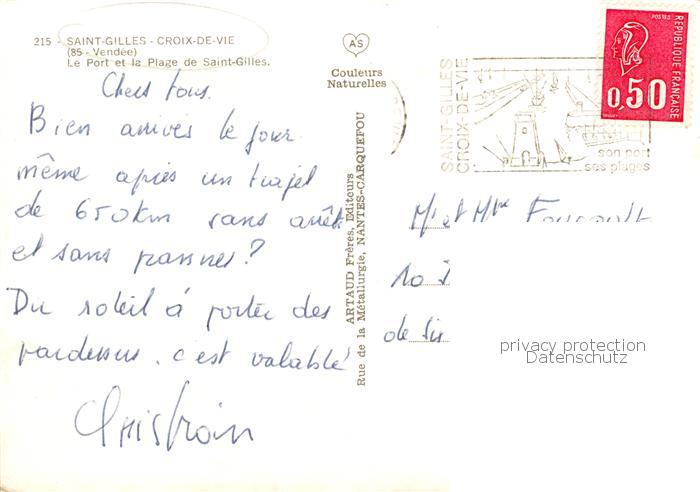 215 - SAINT-GILLES - CROIX-DE-VIE
(85 - Vendée)
Le Port et la Plage de Saint-Gilles.
AS
Couleurs
Naturelles
Chers tous.
Bien arrivés le jour
même après un trajet
de 650km sans arrêt
et sans pannes?
Du soleil à porter des
pardessus. c'est valable
ARTAUD Frères, Editeurs
Rue de la Métallurgie, NANTES-CARQUEFOU
SAINT-GILLES
CROIX-DE-VIE
son port
ses plages
POSTES
REPUBLIQUE FRANÇAISE
0,50
Mr et Mme
10
de
privacy protection
Datenschutz